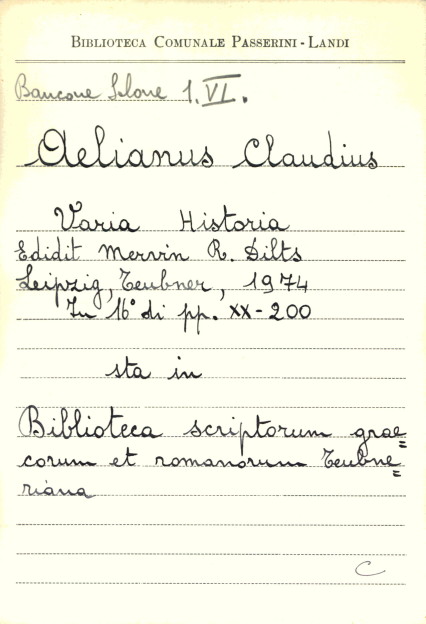 BIBLIOTECA COMUNALE PASSERINI - LANDI
Bancone Salone 1. VI.
Aelianus Claudius
Varia Historia
Edidit Mervin R. Dilts
Leipzig, Teubner, 1974
In 16° di pp. XX-200
sta in
Biblioteca scriptorum grae=
corum et romanorum Teubne=
riana
C